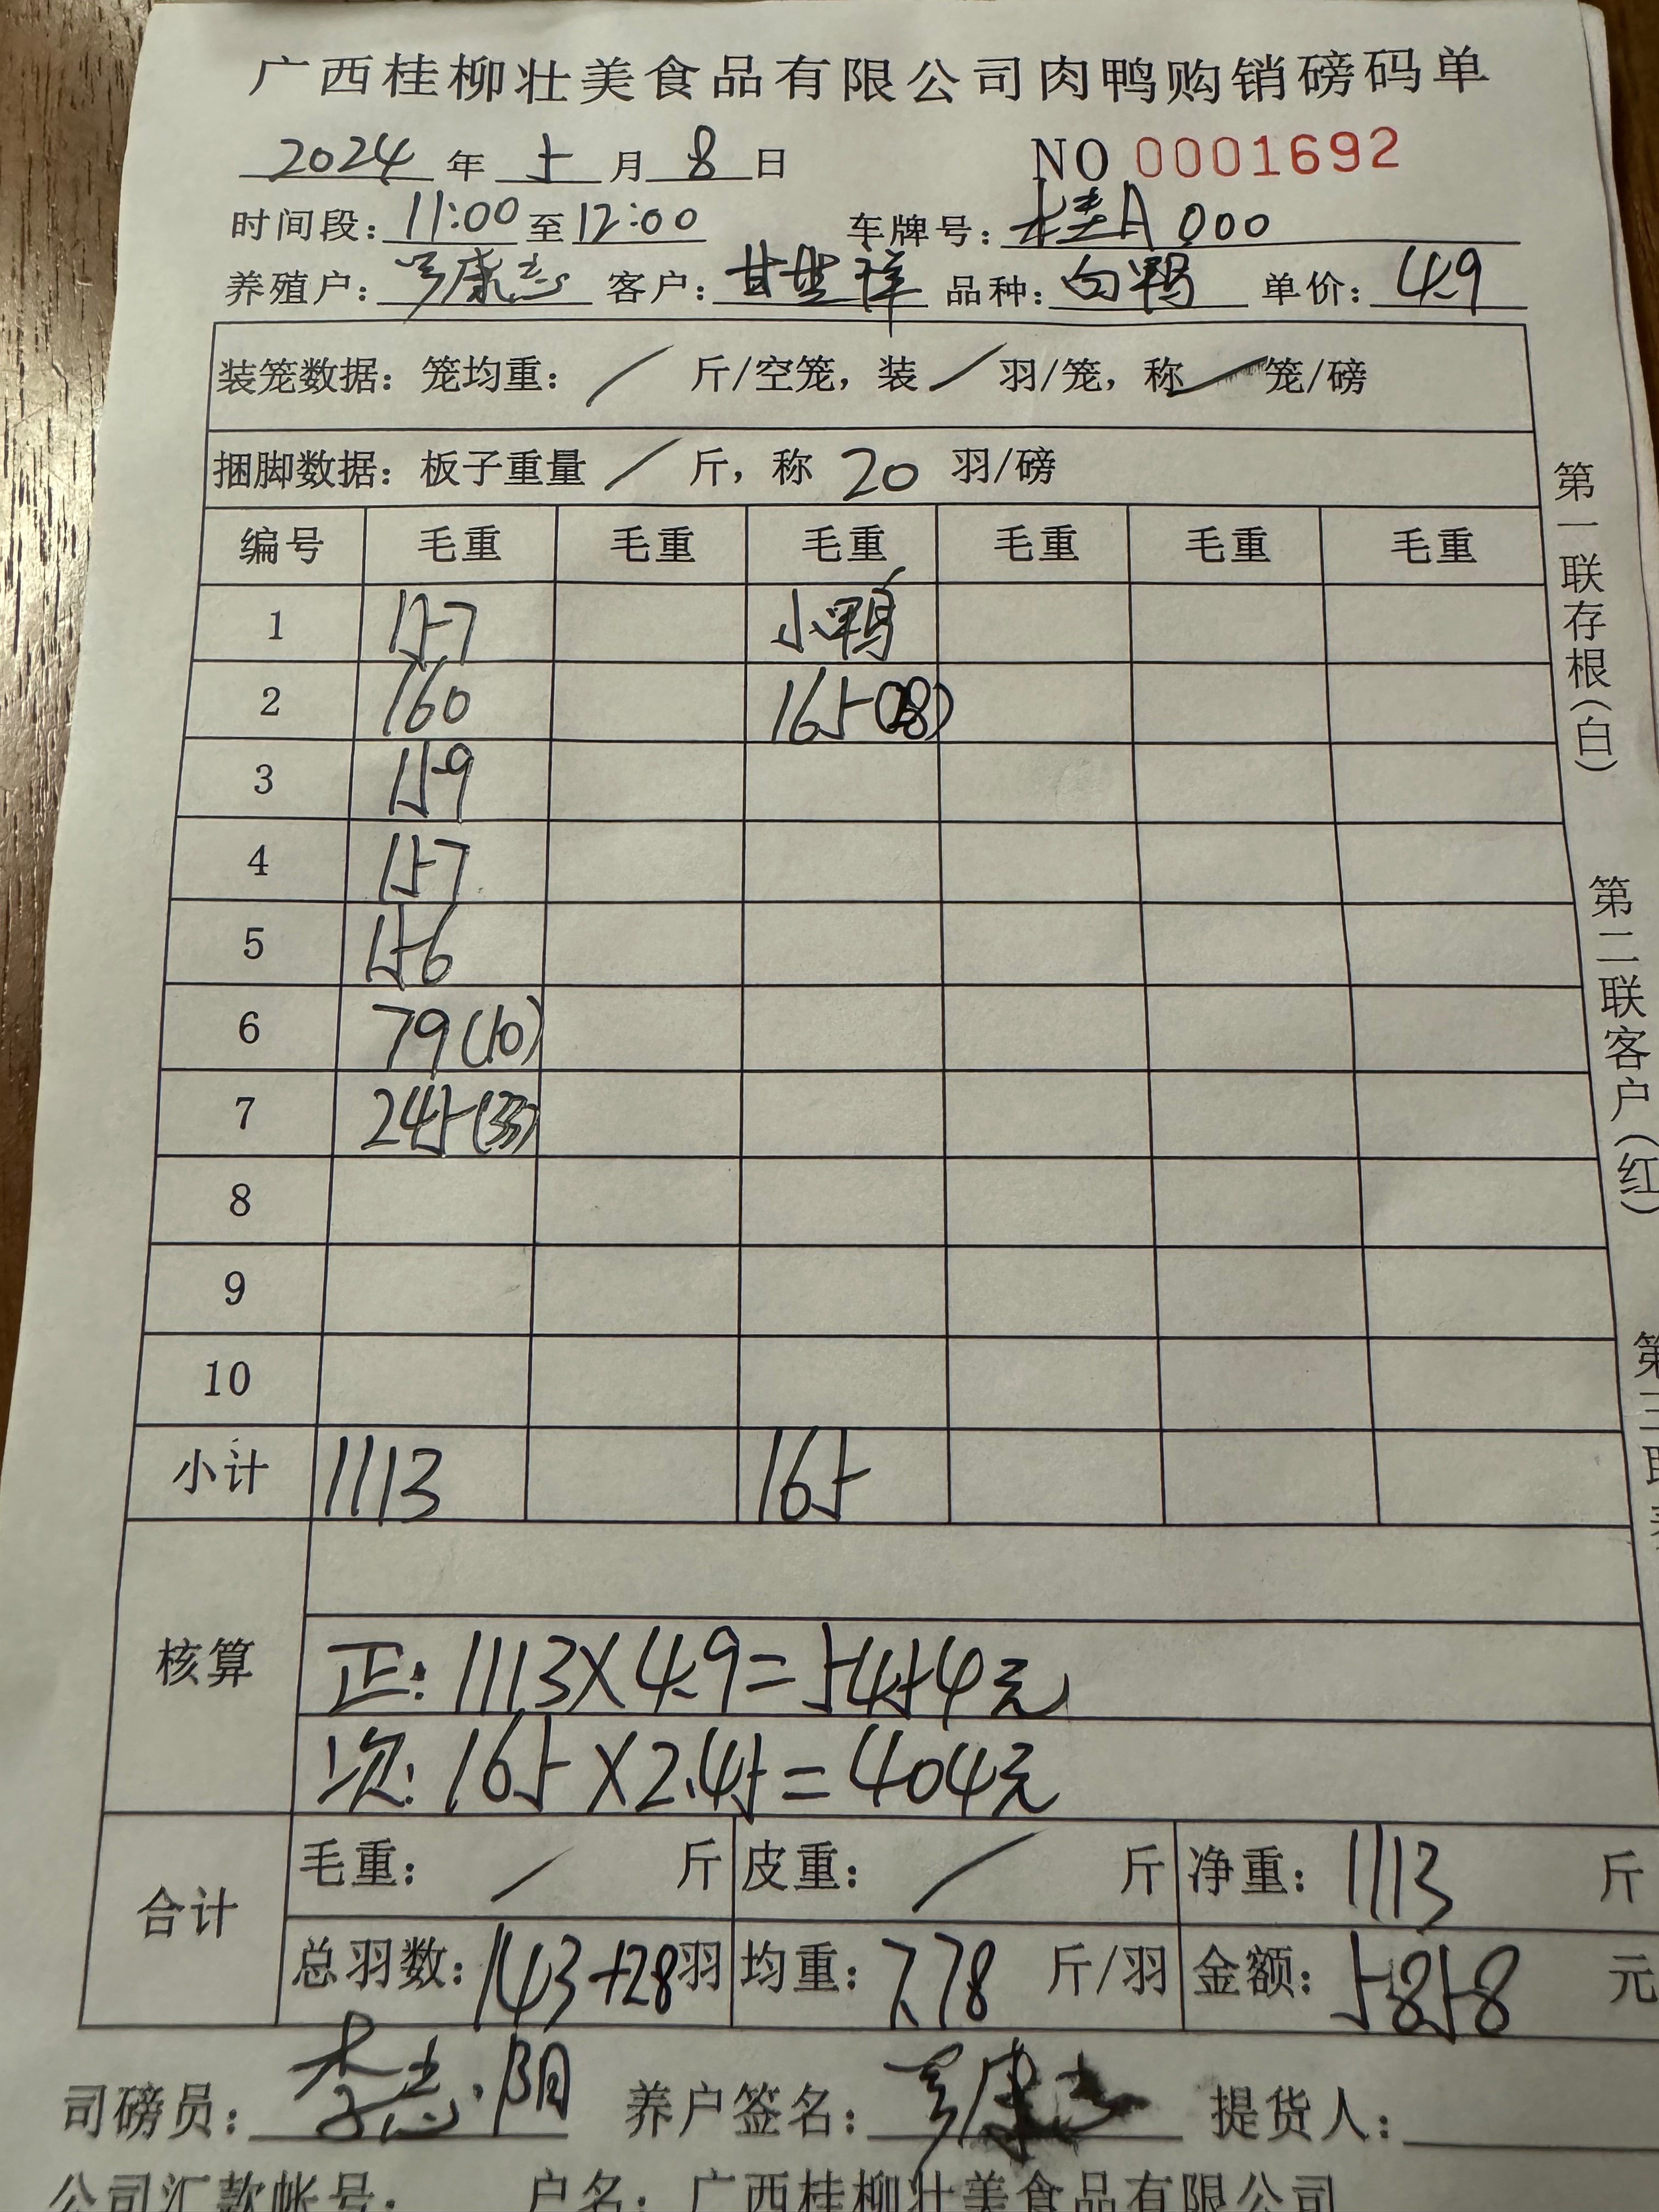 广西桂柳壮美食品有限公司肉鸭购销磅码单
2024 年 5 月 8 日 NO 0001692
时间段: 11:00 至 12:00 车牌号: 桂A 000
养殖户: 康志 客户: 甘 祥 品种: 白鸭 单价: 4.9
装笼数据: 笼均重: / 斤/空笼, 装 / 羽/笼, 称 / 笼/磅
捆脚数据: 板子重量 / 斤, 称 20 羽/磅
编号 毛重 毛重 毛重 毛重 毛重 毛重
1 157 小鸭
2 160 165(28)
3 159
4 157
5 156
6 79(10)
7 245(33)
8
9
10
小计 1113 165
核算
正: 1113×4.9=5454元
次: 165×2.45=404元
合计
毛重: / 斤 皮重: / 斤 净重: 1113 斤
总羽数: 143+28羽 均重: 7.78 斤/羽 金额: 5858 元
司磅员: 李志阴 养户签名: 康志 提货人:
公司汇款帐号: 户名: 广西桂柳壮美食品有限公司
第一联存根(白)
第二联客户(红)
第三联